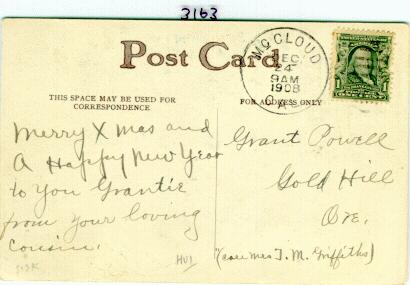 3163
Post Card
McCLOUD
DEC
24
9AM
1908
CAL
THIS SPACE MAY BE USED FOR
CORRESPONDENCE
FOR ADDRESS ONLY
Merry X mas and
A Happy New Year
to You Grantie
from your loving
cousin.
Grant Powell
Gold Hill
Ore.
(care Mrs T. M. Griffiths)